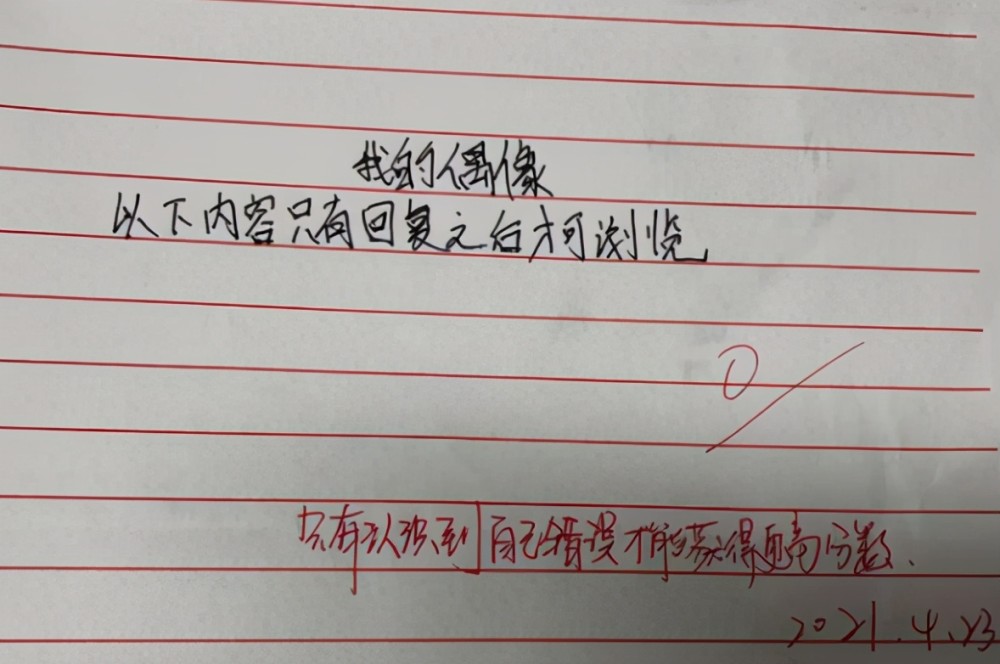 我的偶像
以下内容只有回复之后才可浏览
0
只有认识到自己错误才能获得更高分数.
2021.4.23